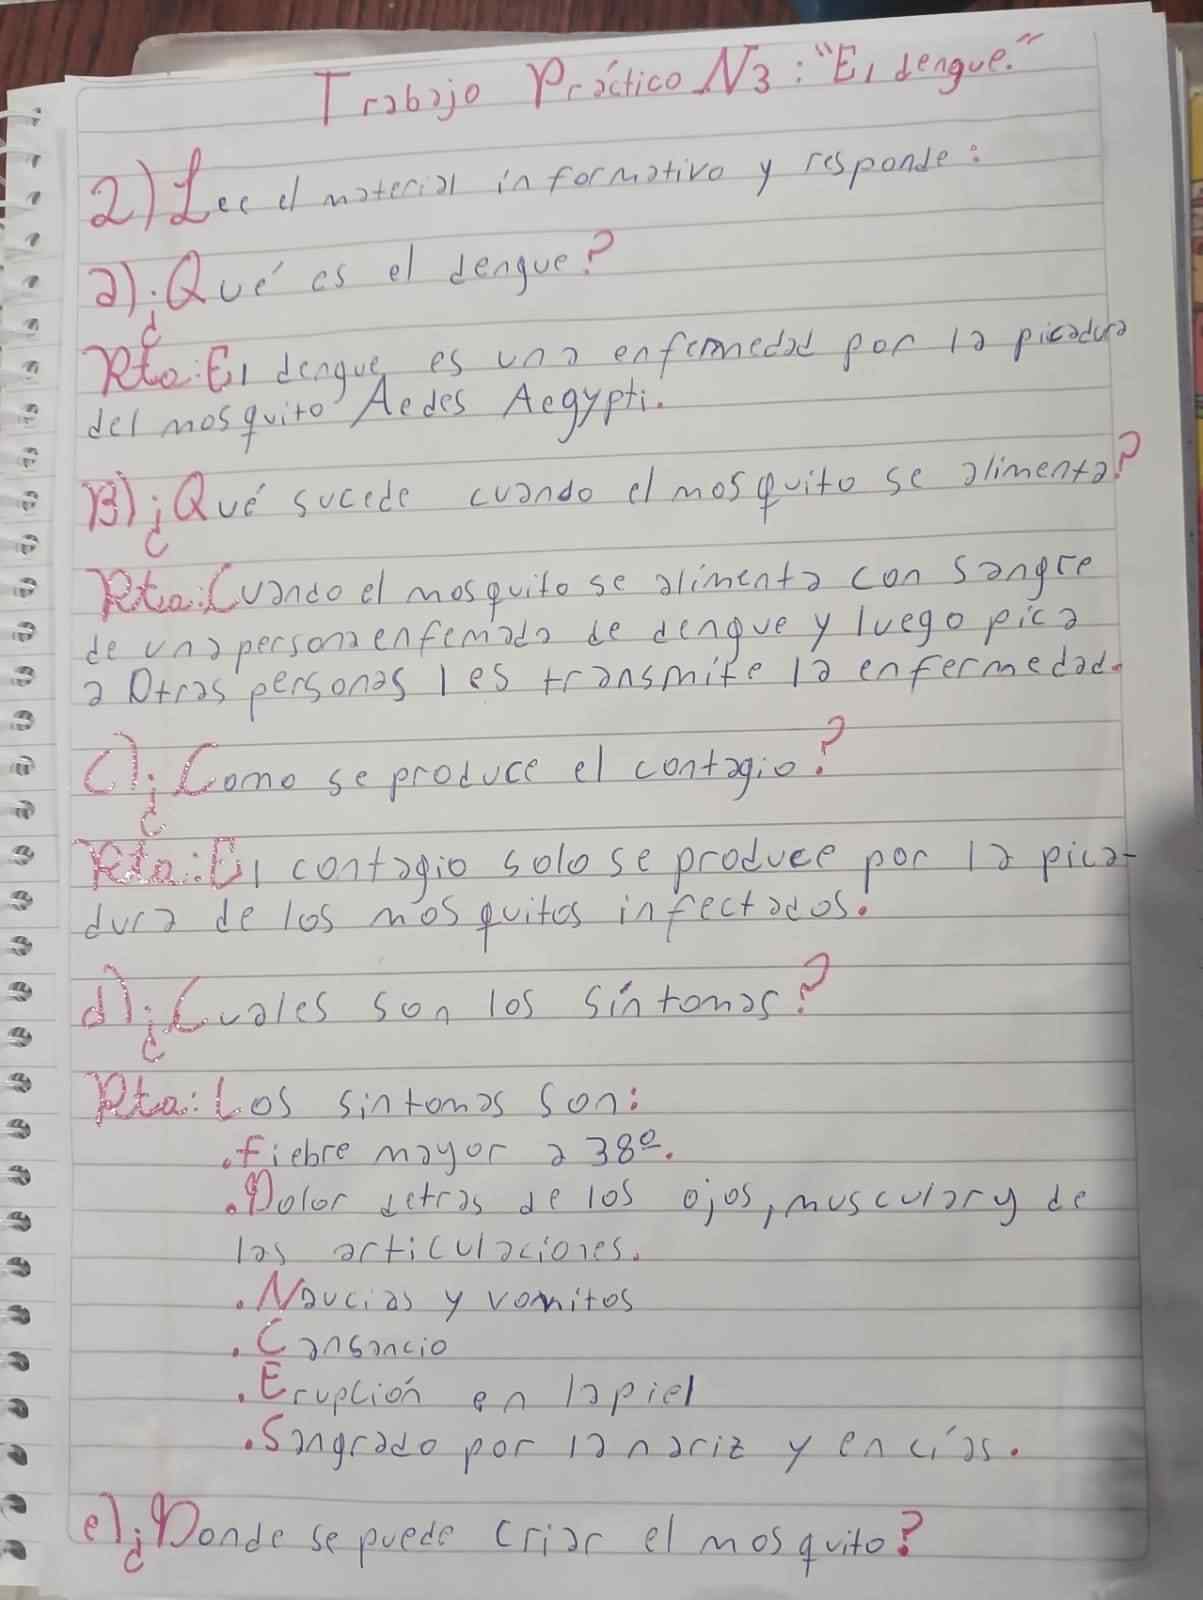 Trabajo Práctico N3: "El dengue."
2) Lee el material informativo y responde:
a) ¿Qué es el dengue?
Rta: El dengue es una enfermedad por la picadura
del mosquito Aedes Aegypti.
B) ¿Qué sucede cuando el mosquito se alimenta?
Rta: Cuando el mosquito se alimenta con sangre
de una persona enfemada de dengue y luego pica
a Otras personas les transmite la enfermedad.
C) ¿Como se produce el contagio?
Rta: El contagio solo se produce por la pica-
dura de los mosquitos infectados.
d) ¿Cuales son los síntomas?
Rta: Los sintomas son:
.Fiebre mayor a 38º.
.Dolor detras de los ojos, muscular y de
las articulaciones.
.Naucias y vomitos
.Cansancio
.Erupción en la piel
.Sangrado por la nariz y encías.
e) ¿Donde se puede criar el mosquito?